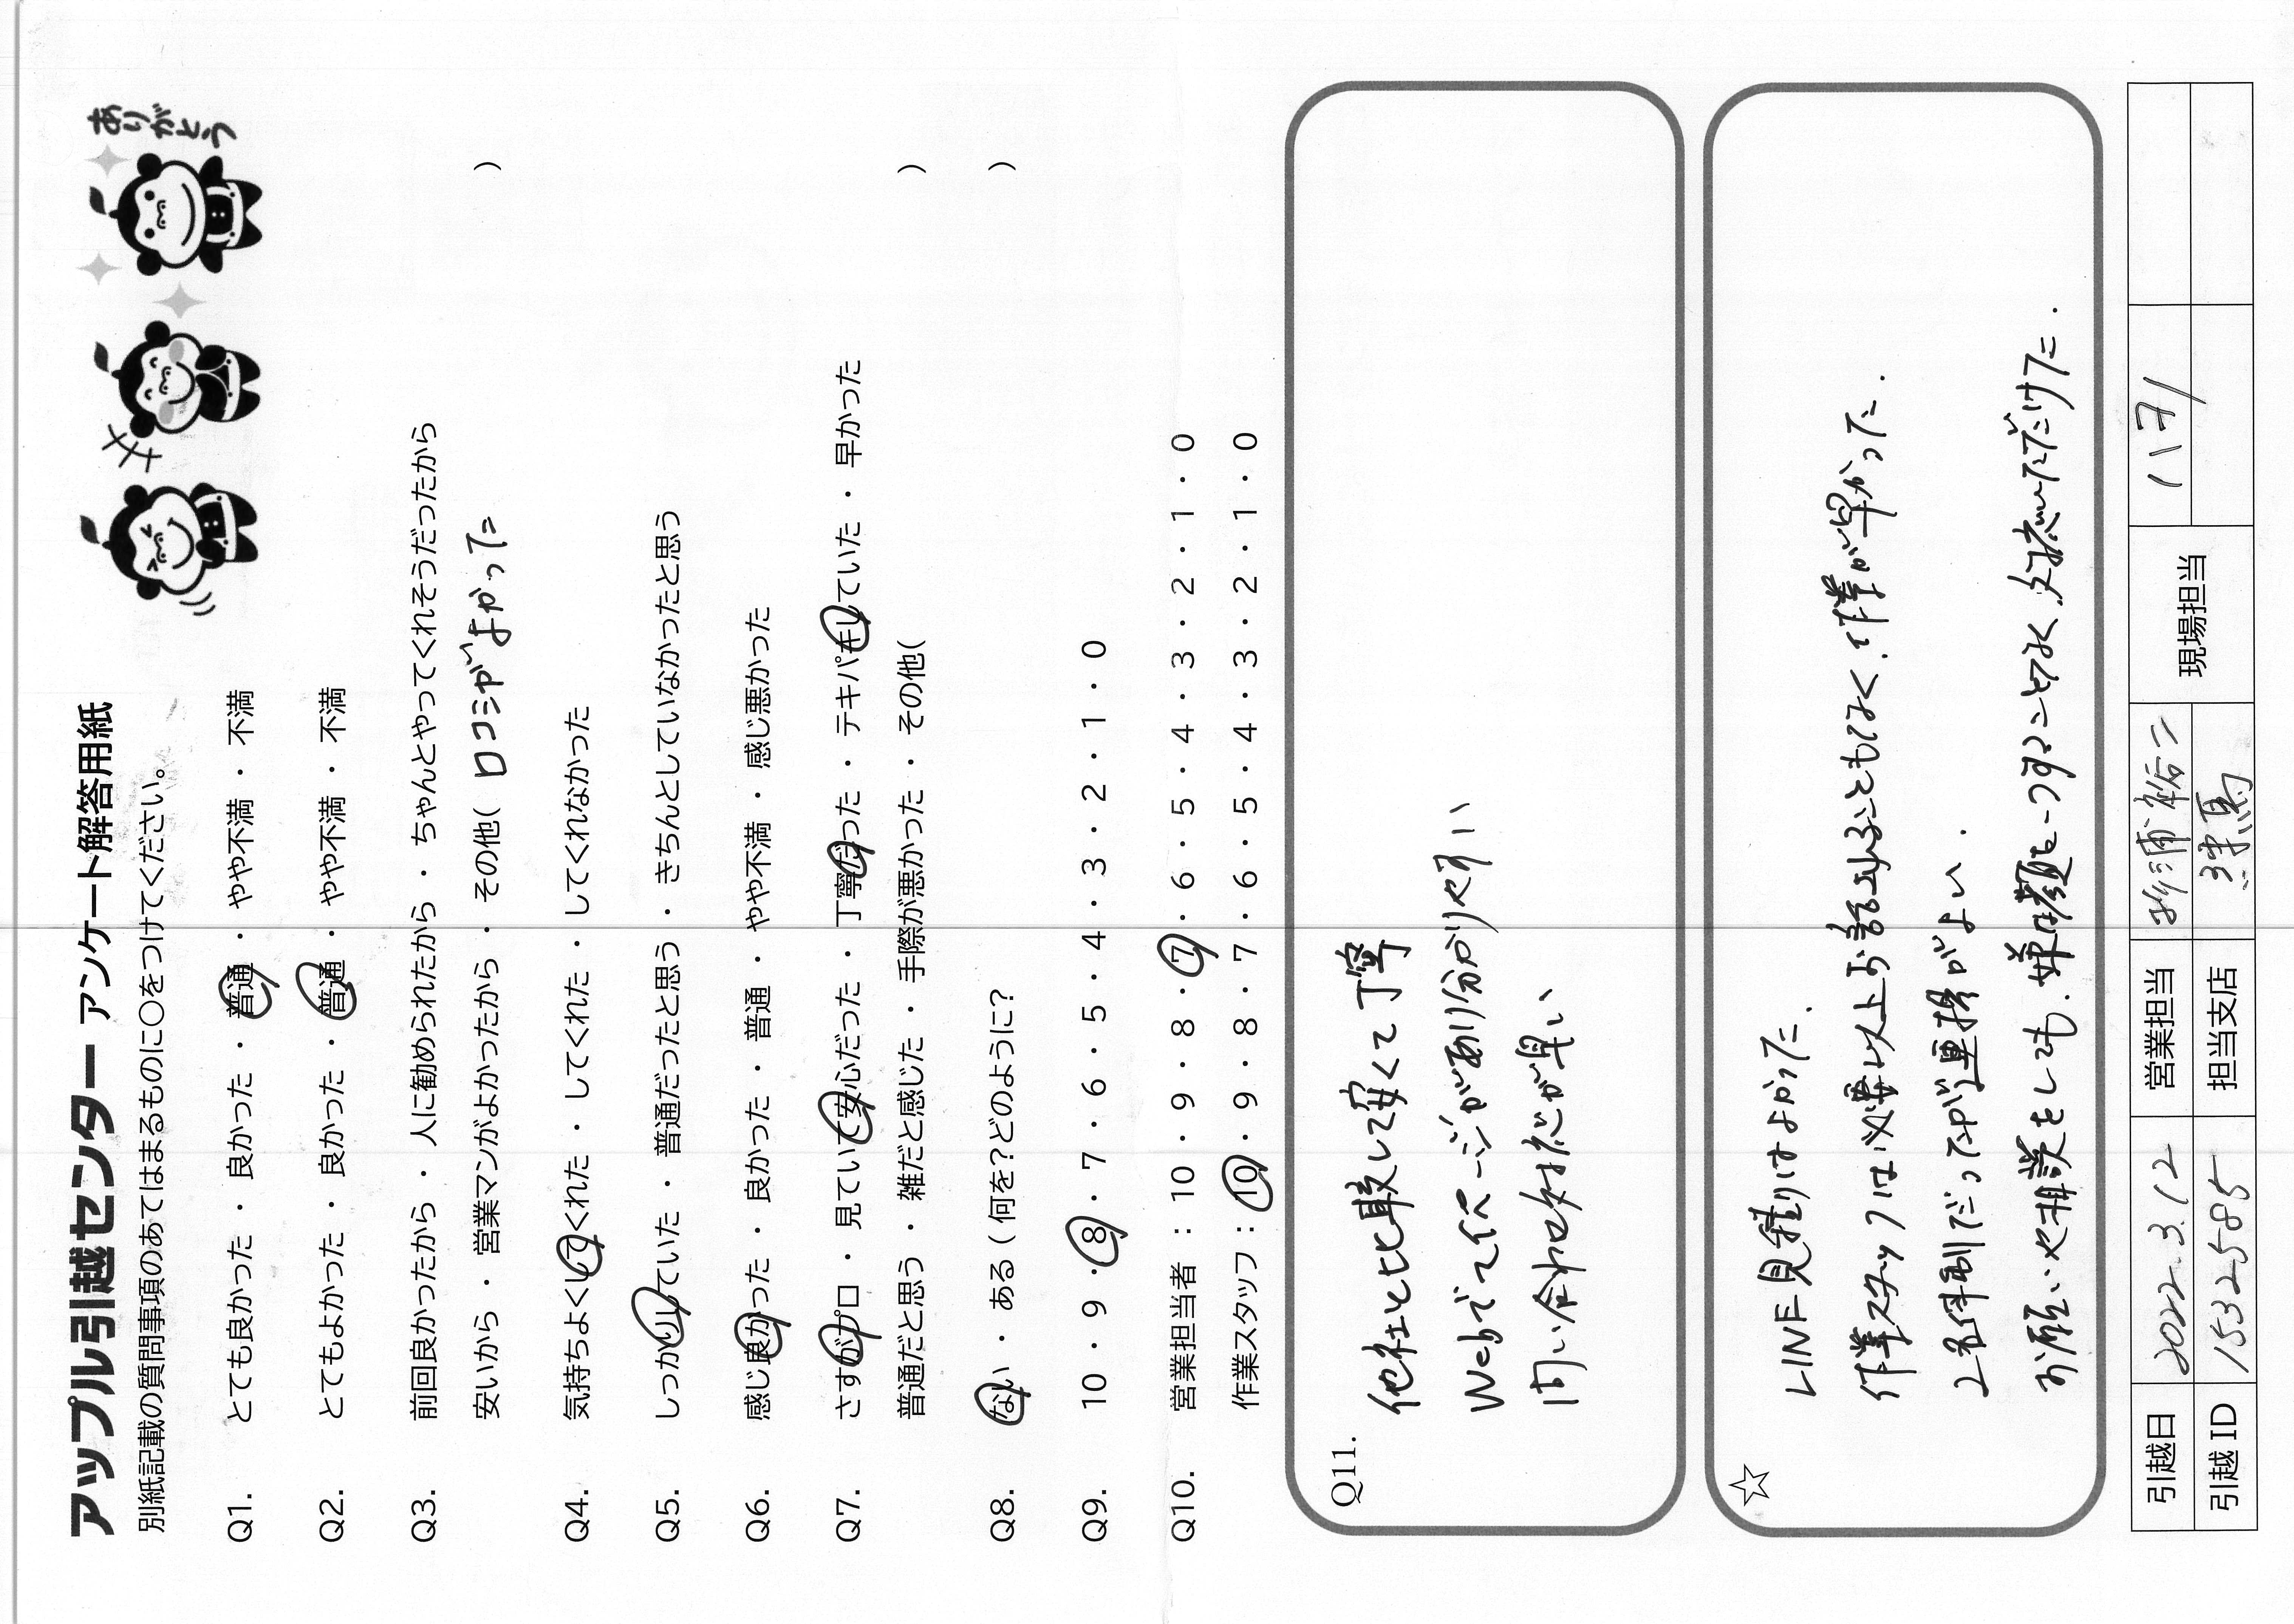 アップル引越センター アンケート解答用紙
ありがとう
別紙記載の質問事項のあてはまるものに〇をつけてください。
Q1. とても良かった ・ 良かった ・ 普通 ・ やや不満 ・ 不満
Q2. とてもよかった ・ 良かった ・ 普通 ・ やや不満 ・ 不満
Q3. 前回良かったから ・ 人に勧められたから ・ ちゃんとやってくれそうだったから
安いから ・ 営業マンがよかったから ・ その他( 口コミがよかった )
Q4. 気持ちよくしてくれた ・ してくれた ・ してくれなかった
Q5. しっかりしていた ・ 普通だったと思う ・ きちんとしていなかったと思う
Q6. 感じ良かった ・ 良かった ・ 普通 ・ やや不満 ・ 感じ悪かった
Q7. さすがプロ ・ 見ていて安心だった ・ 丁寧だった ・ テキパキしていた ・ 早かった
普通だと思う ・ 雑だと感じた ・ 手際が悪かった ・ その他( )
Q8. ない ・ ある ( 何を?どのように? )
Q9. 10 ・ 9 ・ 8 ・ 7 ・ 6 ・ 5 ・ 4 ・ 3 ・ 2 ・ 1 ・ 0
Q10. 営業担当者 : 10 ・ 9 ・ 8 ・ 7 ・ 6 ・ 5 ・ 4 ・ 3 ・ 2 ・ 1 ・ 0
作業スタッフ : 10 ・ 9 ・ 8 ・ 7 ・ 6 ・ 5 ・ 4 ・ 3 ・ 2 ・ 1 ・ 0
Q11.
他社と比較して安くて丁寧
Webでて代ページがあり分かりやすい
問い合わせ対応が早い
☆
LINE見積りはよかった.
作業スタッフは必要以上お話することもなく、作業が早かった.
2名体制だったが連携がよい.
お願いや相談をしても、嫌な顔一つすることなく、対応いただけた.
引越日 2022.3.12 営業担当 杉浦裕二 現場担当 八乙
引越ID 1532585 担当支店 練馬